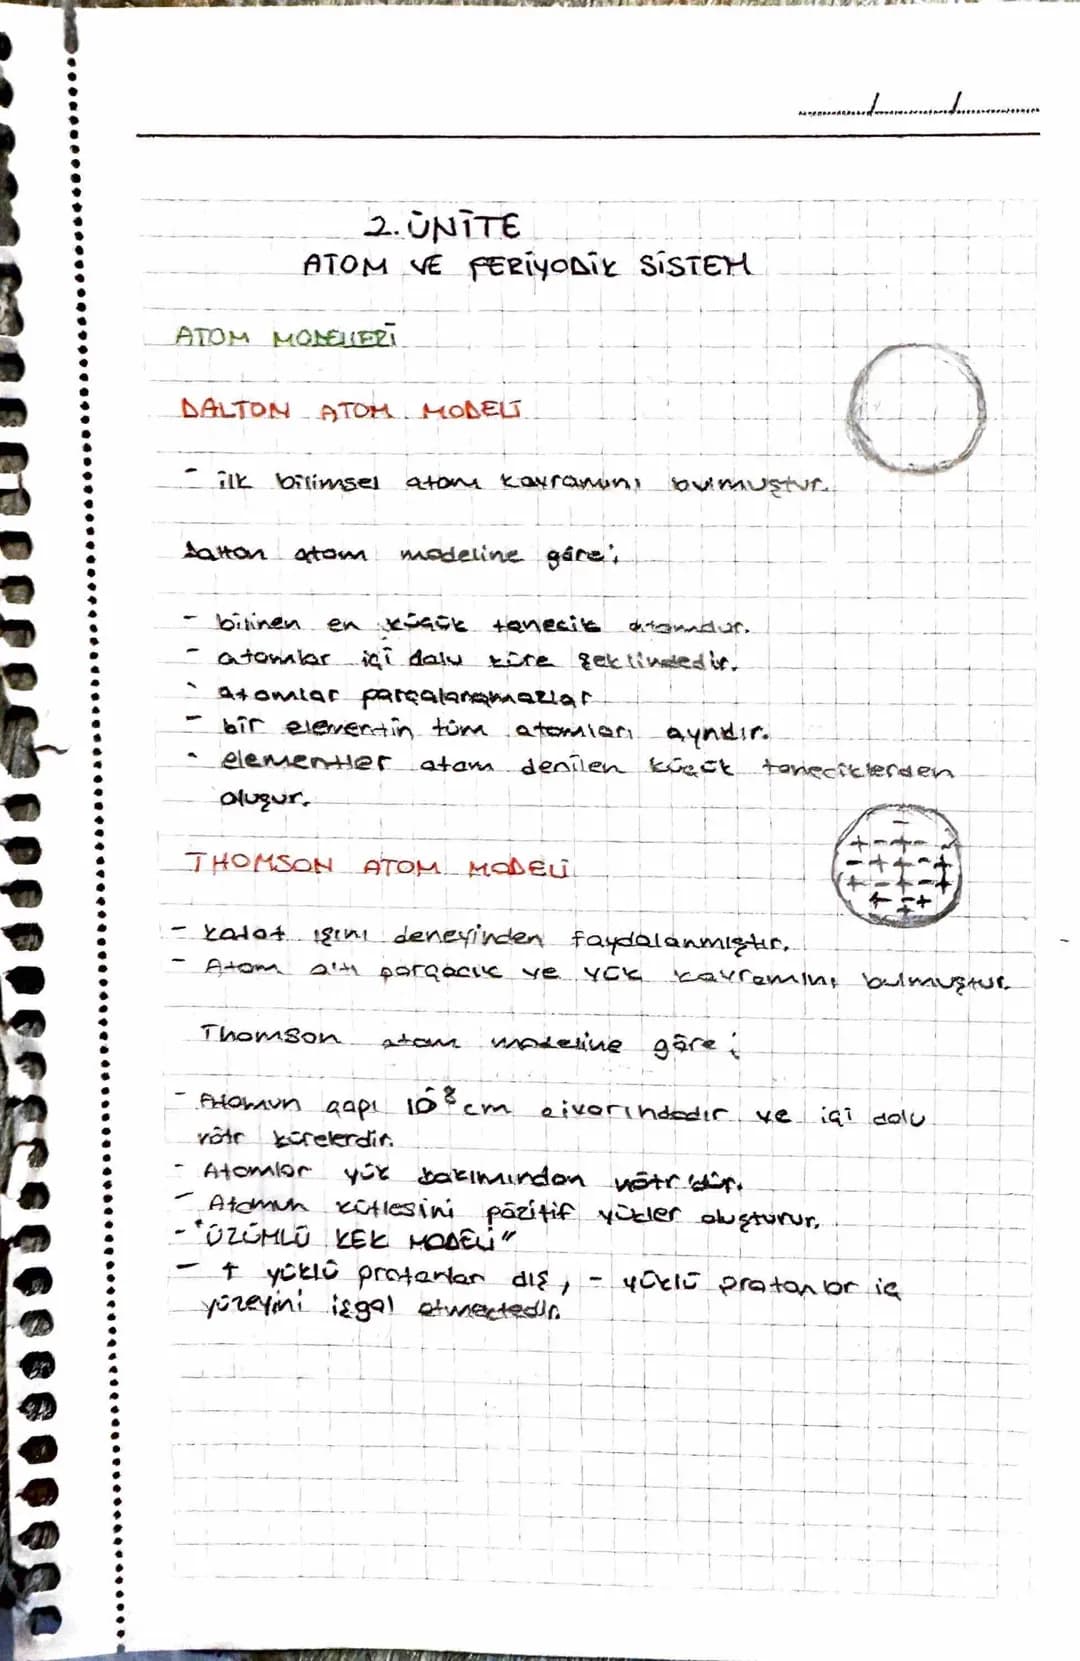 2. ÜNİTE
ATOM VE PERİYODİK SİSTEM
ATOM MODELLERİ
DALTON ATOM MODELİ
- ilk bilimsel atom kavramını bulmuştur.
Dalton atom modeline göre;
- bilinen en küçük tanecik atomdur.
- atomlar içi dolu küre şeklindedir.
- atomlar parçalanamazlar
- bir elementin tüm atomları aynıdır.
- elementler atom denilen küçük taneciklerden
oluşur.
THOMSON ATOM MODELİ
- katot ışını deneyinden faydalanmıştır.
- Atom altı parçacık ve yük kavramını bulmuştur.
Thomson atom modeline göre;
- Atomun çapı 10⁻⁸ cm civarındadır ve içi dolu
nötr kürelerdir.
- Atomlar yük bakımından nötr'dür.
- Atomun kütlesini pozitif yükler oluşturur.
- "ÜZÜMLÜ KEK MODELİ"
- + yüklü protonlar dış, - yüklü protonlar iç
yüzeyini işgal etmektedir.